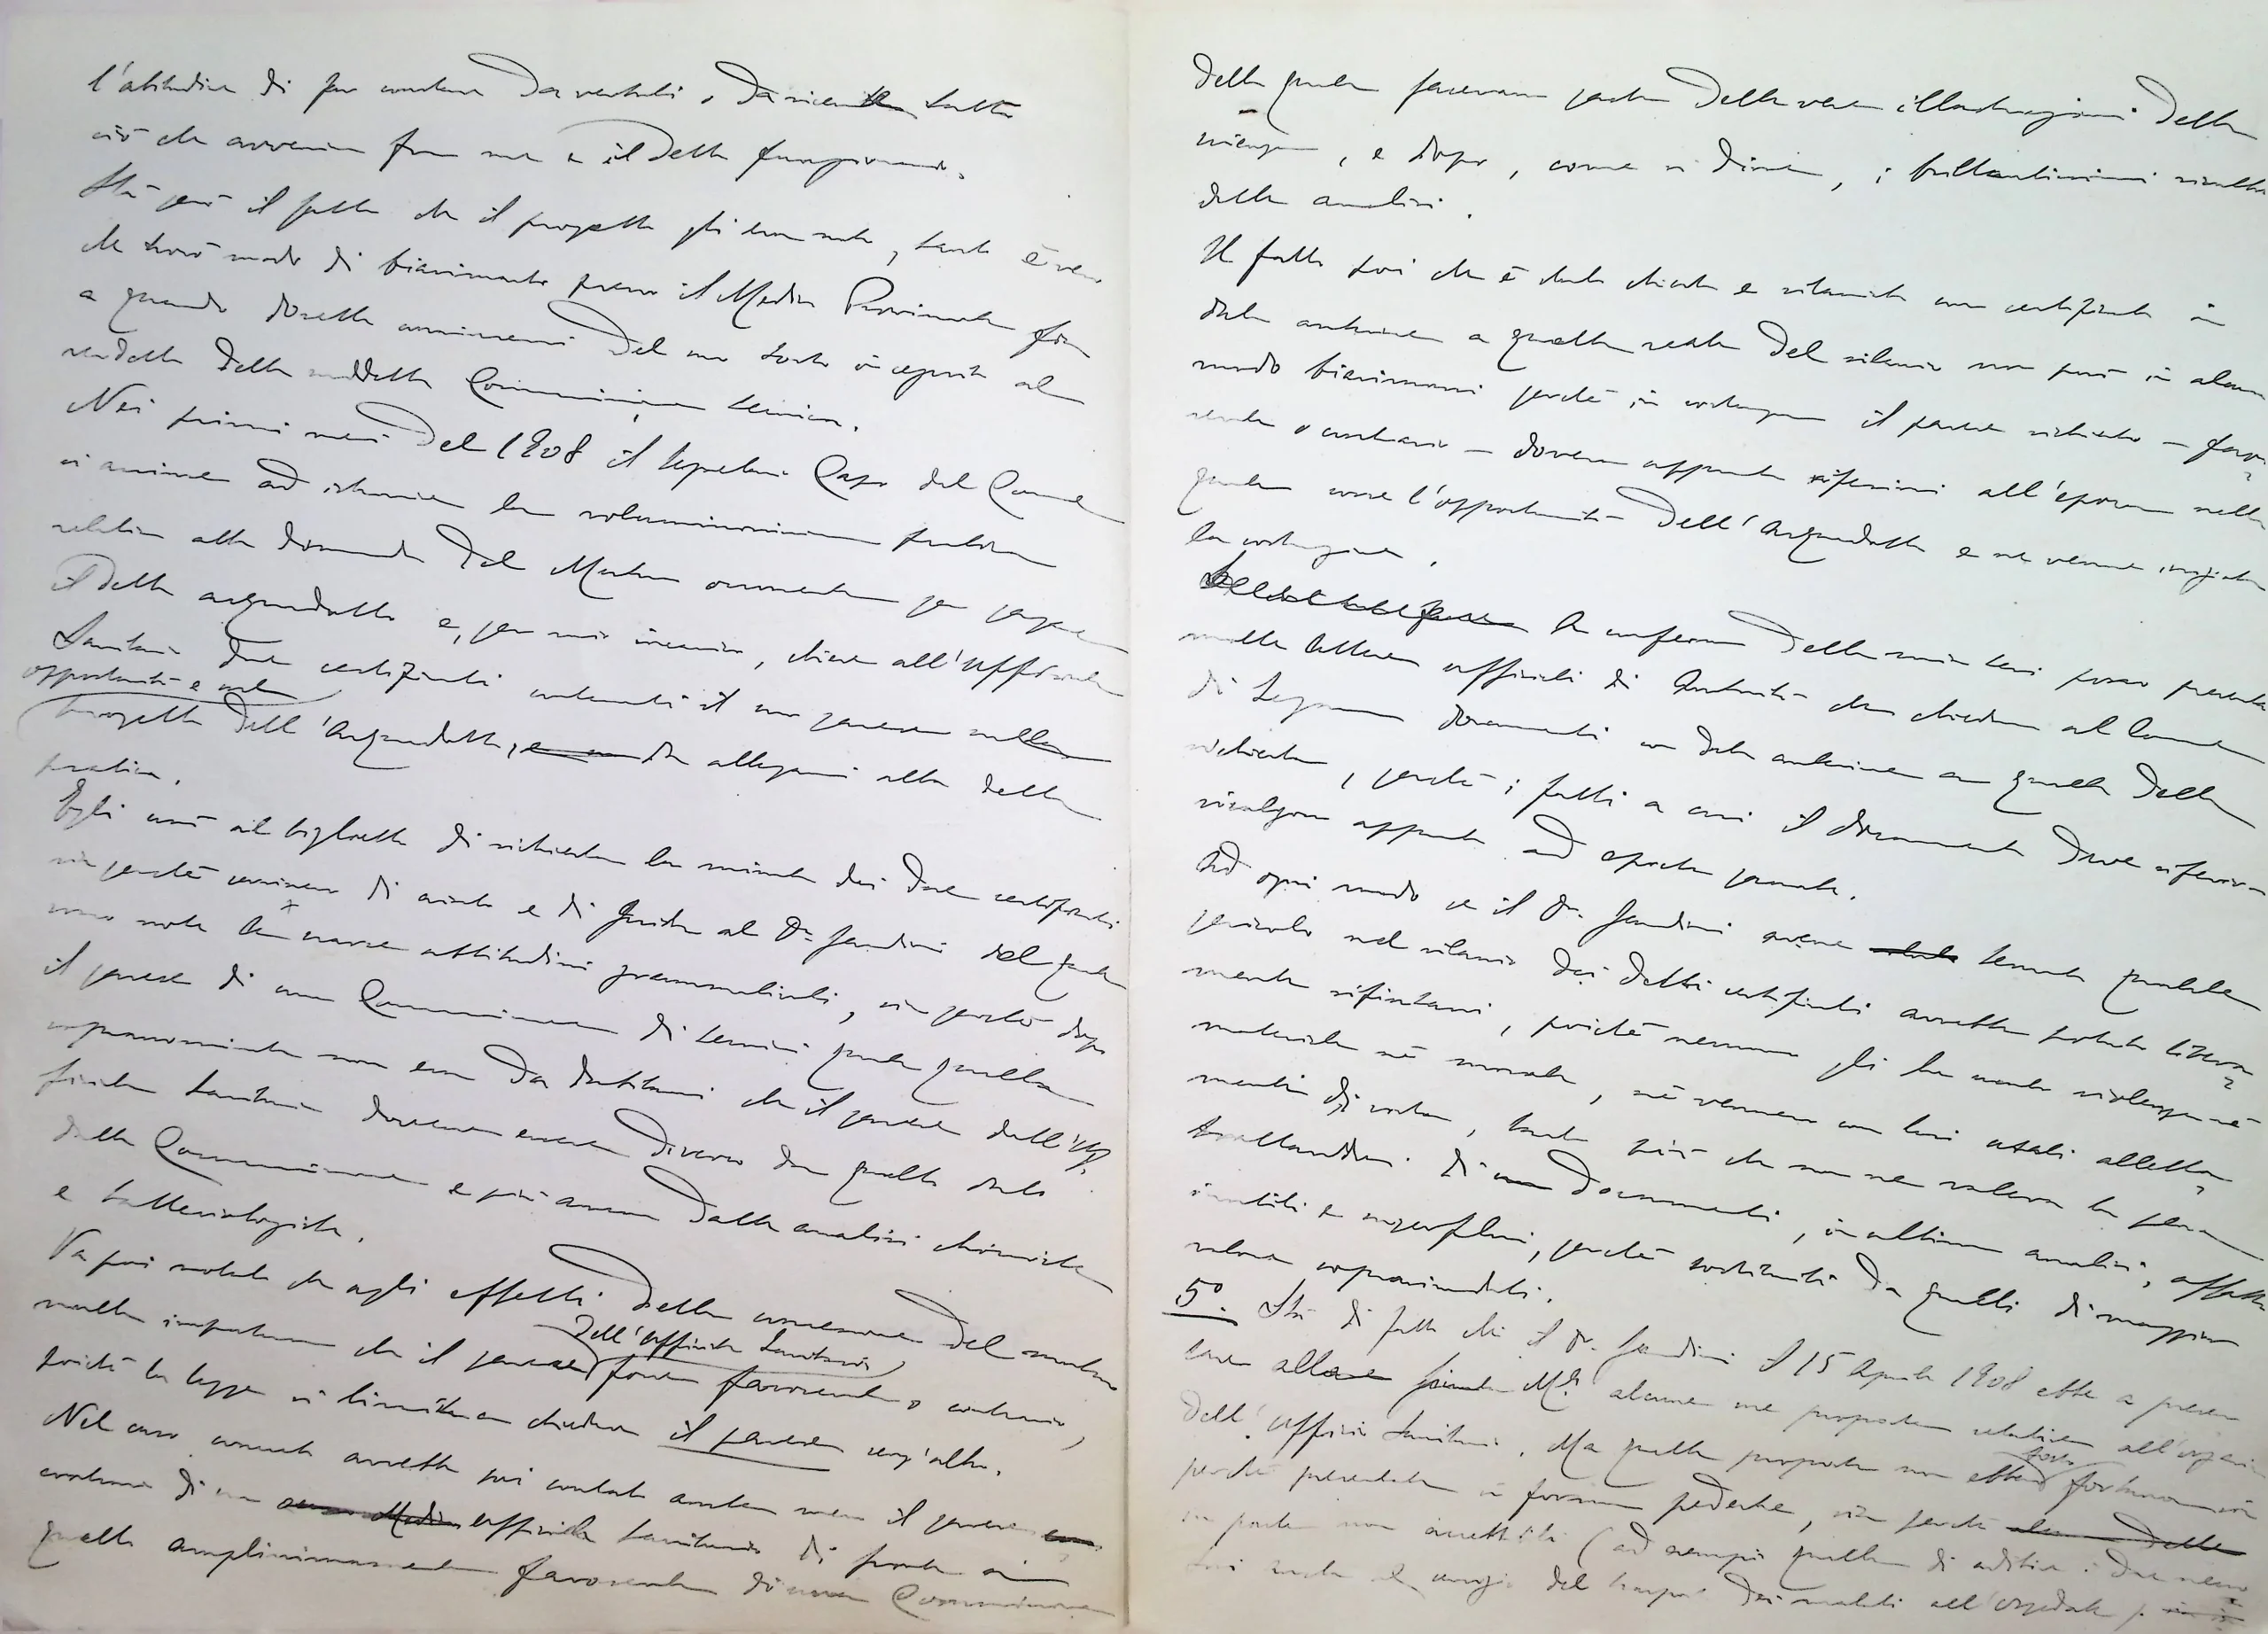 l'abitudine di far contare da vertuti, da vicende tutto
ciò che avveniva fra me e il detto funzionario.
Sta però il fatto che il progetto gli era noto, tanto è vero
che trovò modo di biasimarlo presso il Medico Provinciale fin
a quando dovette convincersi del suo torto in seguito al
verdetto della suddetta Commissione tecnica.
Nei primi mesi del 1908 il Segretario Capo del Comune
si accinse ad istruire la voluminosissima pratica
relativa alla domanda del Mutuo occorrente per
il detto acquedotto e, per mio incarico, chiese all'Ufficiale
Sanitario due certificati contenenti il suo parere sulla
opportunità e sul
progetto dell'Acquedotto, da allegarsi alla detta
pratica.
Egli unì al biglietto di richiesta la minuta dei due certificati
sia perchè servissero di aiuto e di guida al Dr. Gandini del quale
sono note le scarse attitudini grammaticali, sia perchè dopo
il parere di una Commissione di tecnici quale quella
sopranominata non era da dubitarsi che il parere dell'Uf-
ficiale Sanitario dovesse essere diverso da quello dato
dalla Commissione e più ancora dalle analisi chimiche
e batteriologiche.
Va poi notato che agli effetti della concessione del mutuo
nulla importava che il parere
dell'Ufficiale Sanitario
fosse favorevole o contrario,
poichè la legge si limitava a chiedere il parere senz'altro.
Nel caso concreto avrebbe poi contato ancora meno il parere
contrario di un Ufficiale Sanitario di fronte a
quello amplissimamente favorevole di una Commissione
della quale facevano parte delle vere illustrazioni della
scienza, e dopo, come si disse, i brillantissimi risultati
delle analisi.
Il fatto poi che è stato chiesto e rilasciato un certificato in
data anteriore a quella reale del rilascio non può in alcun
modo biasimarsi perchè in sostanza il parere richiesto - favo-
revole o contrario - doveva appunto riferirsi all'epoca nella
quale sorse l'opportunità dell'Acquedotto e ne venne iniziata
la costruzione.
A conferma della mia tesi posso presentare
molte lettere ufficiali di Autorità che chiedono al Comune
di Legnano documenti con data anteriore a quella della
richiesta, perchè i fatti a cui il documento deve riferirsi
risalgono appunto ad epoche passate.
Ad ogni modo se il Dr. Gandini avesse temuto qualche
pericolo nel rilascio dei detti certificati avrebbe potuto libera-
mente rifiutarsi, poichè nessuno gli ha usato violenza nè
materiale nè morale, nè vennero con lui usati alletta-
menti di sorta, tanto più che non ne valeva la pena
trattandosi di documenti, in ultima analisi, affatto
inutili e superflui, perchè sostituiti da quelli di maggior
valore sopraricordati.
5º. Sta di fatto che il Dr. Gandini il 15 Aprile 1908 ebbe a presen-
tare alla Giunta M.le alcune sue proposte relative all'organico
dell'Ufficio Sanitario. Ma quelle proposte non ebbero
tosto
fortuna sia
perchè presentate in forma pedestre, sia perchè
in parte non accettabili (ad esempio quella di adibire i due
del trasporto dei malati all'Ospedale